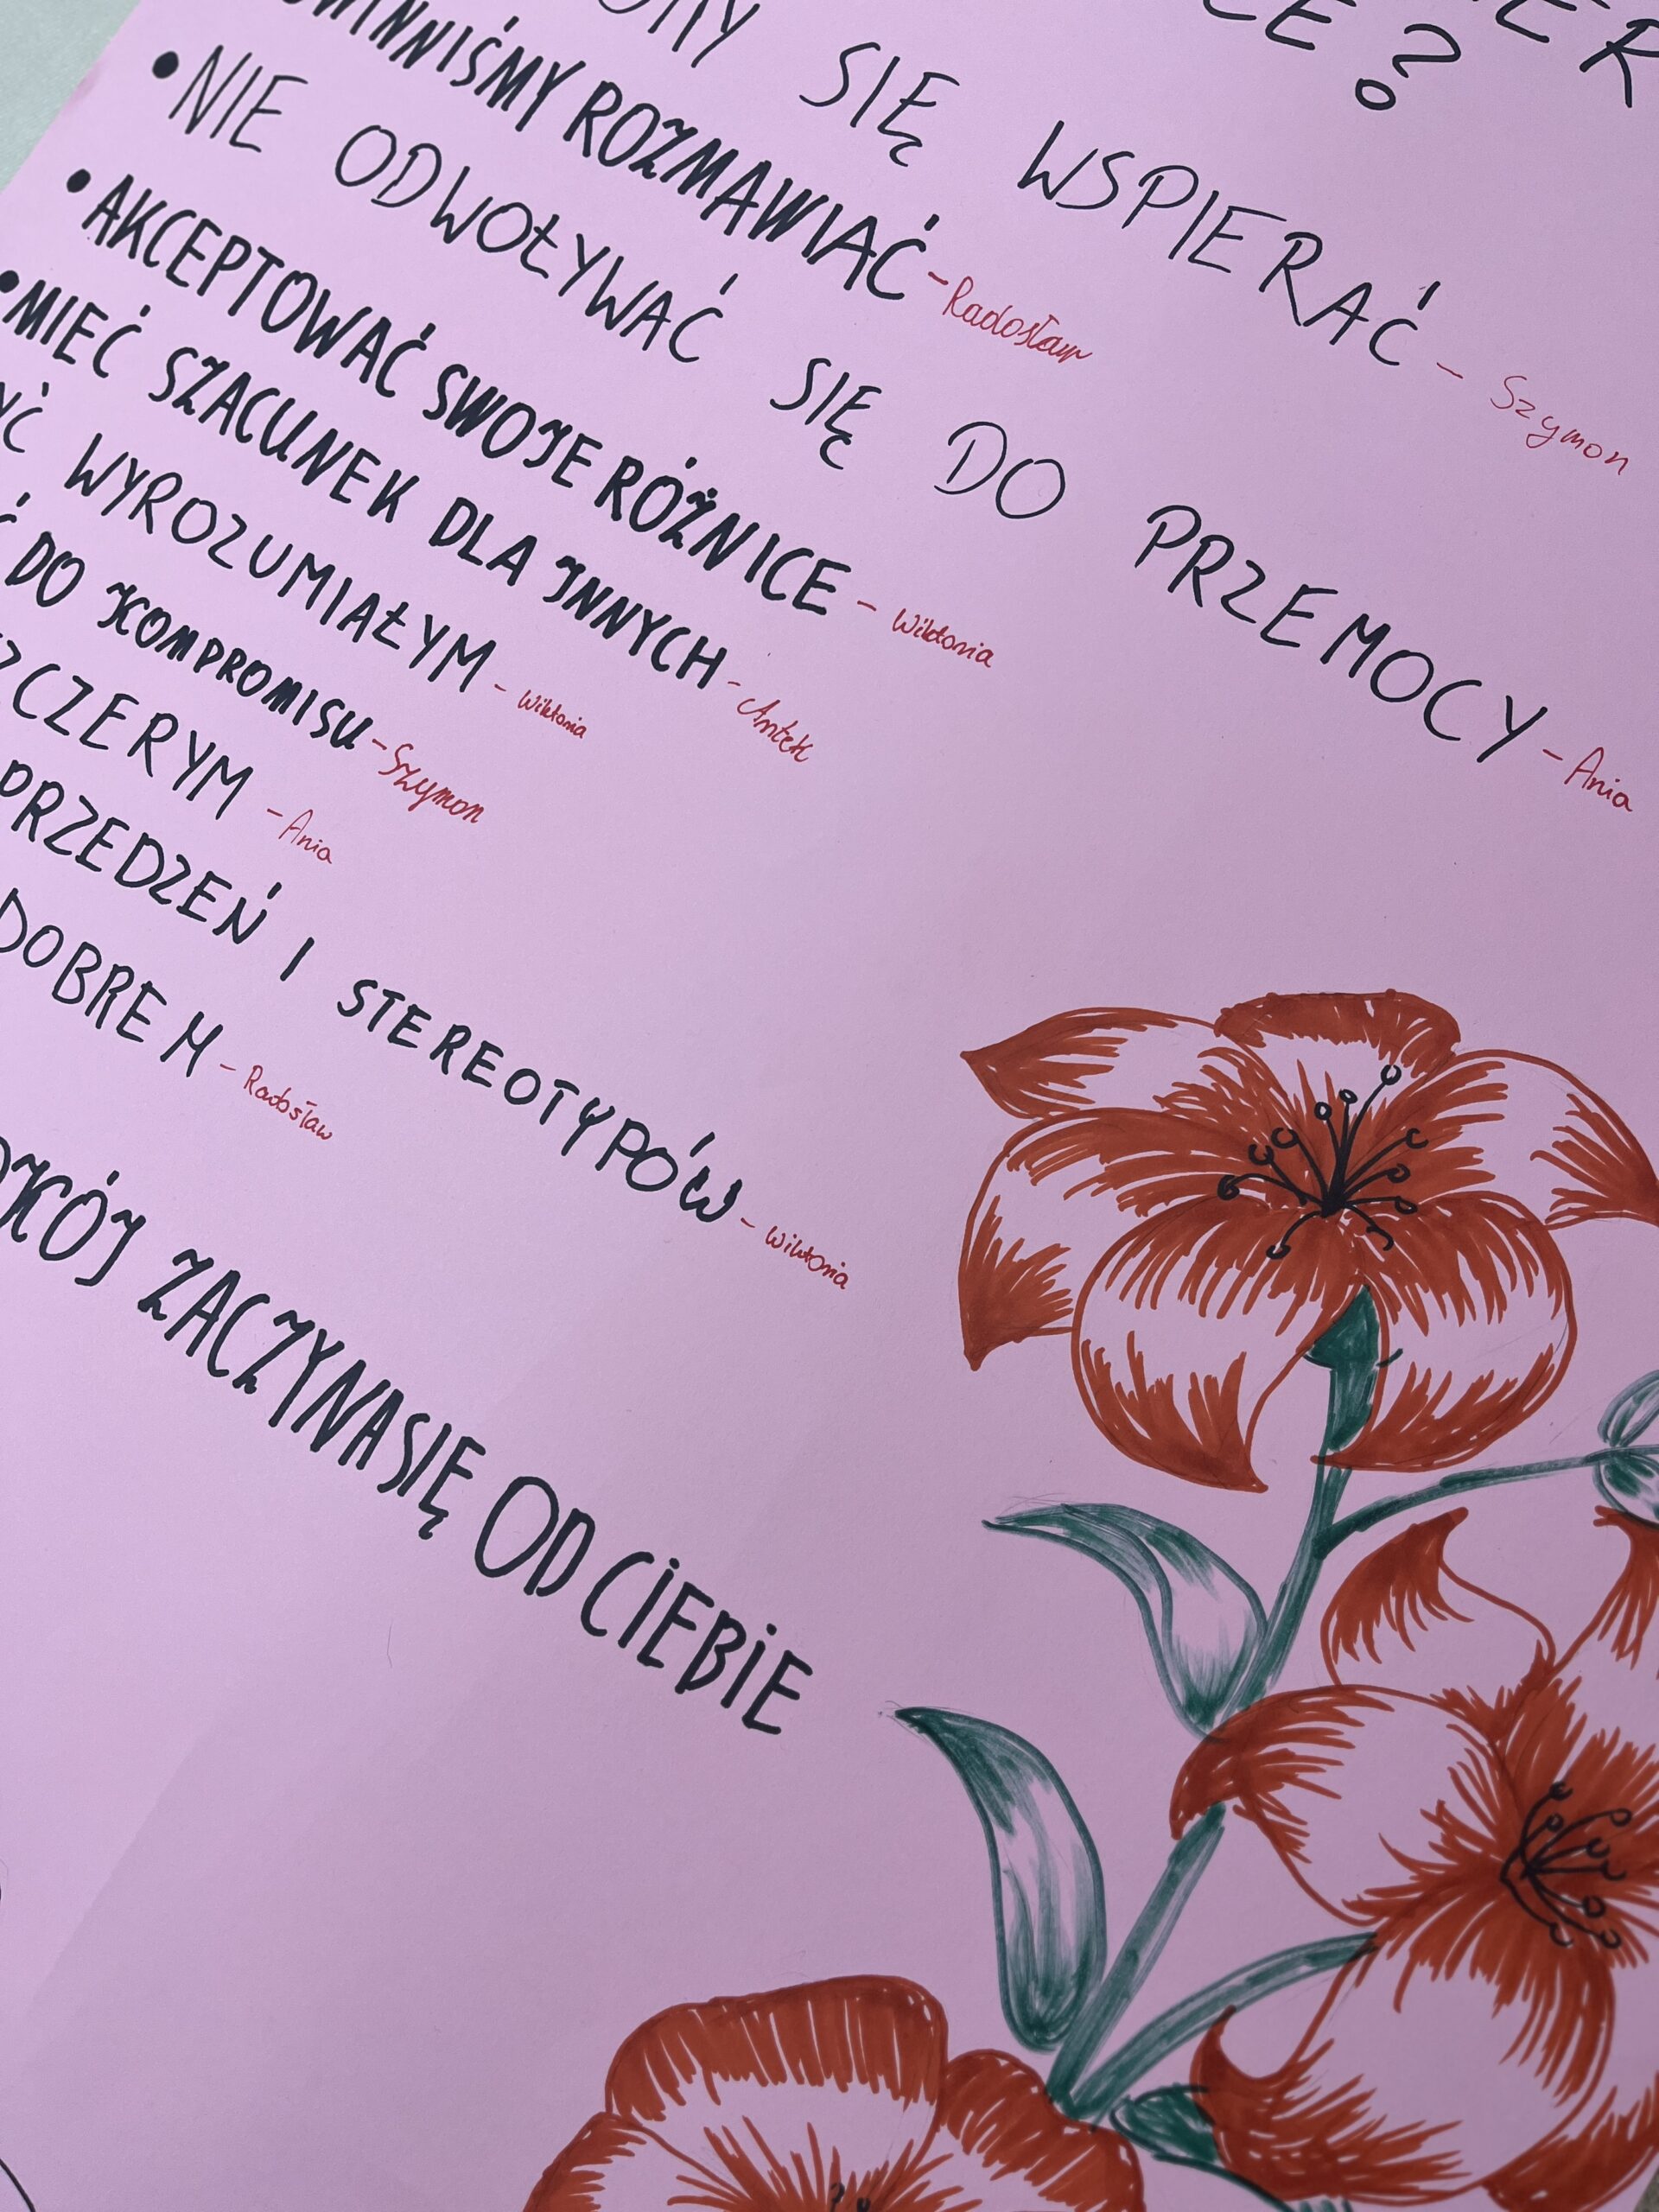 CE?
SIĘ WSPIERAĆ - Szymon
ROZMAWIAĆ - Radosław
• NIE ODWOŁYWAĆ SIĘ DO PRZEMOCY - Ania
• AKCEPTOWAĆ SWOJE RÓŻNICE - Wiktoria
• MIEĆ SZACUNEK DLA INNYCH - Antek
WYROZUMIAŁYM - Wiktoria
DO KOMPROMISU - Szymon
ZCZERYM - Ania
PRZEDZEŃ I STEREOTYPÓW - Wiktoria
DOBREM - Radosław
KÓJ ZACZYNA SIĘ OD CIEBIE